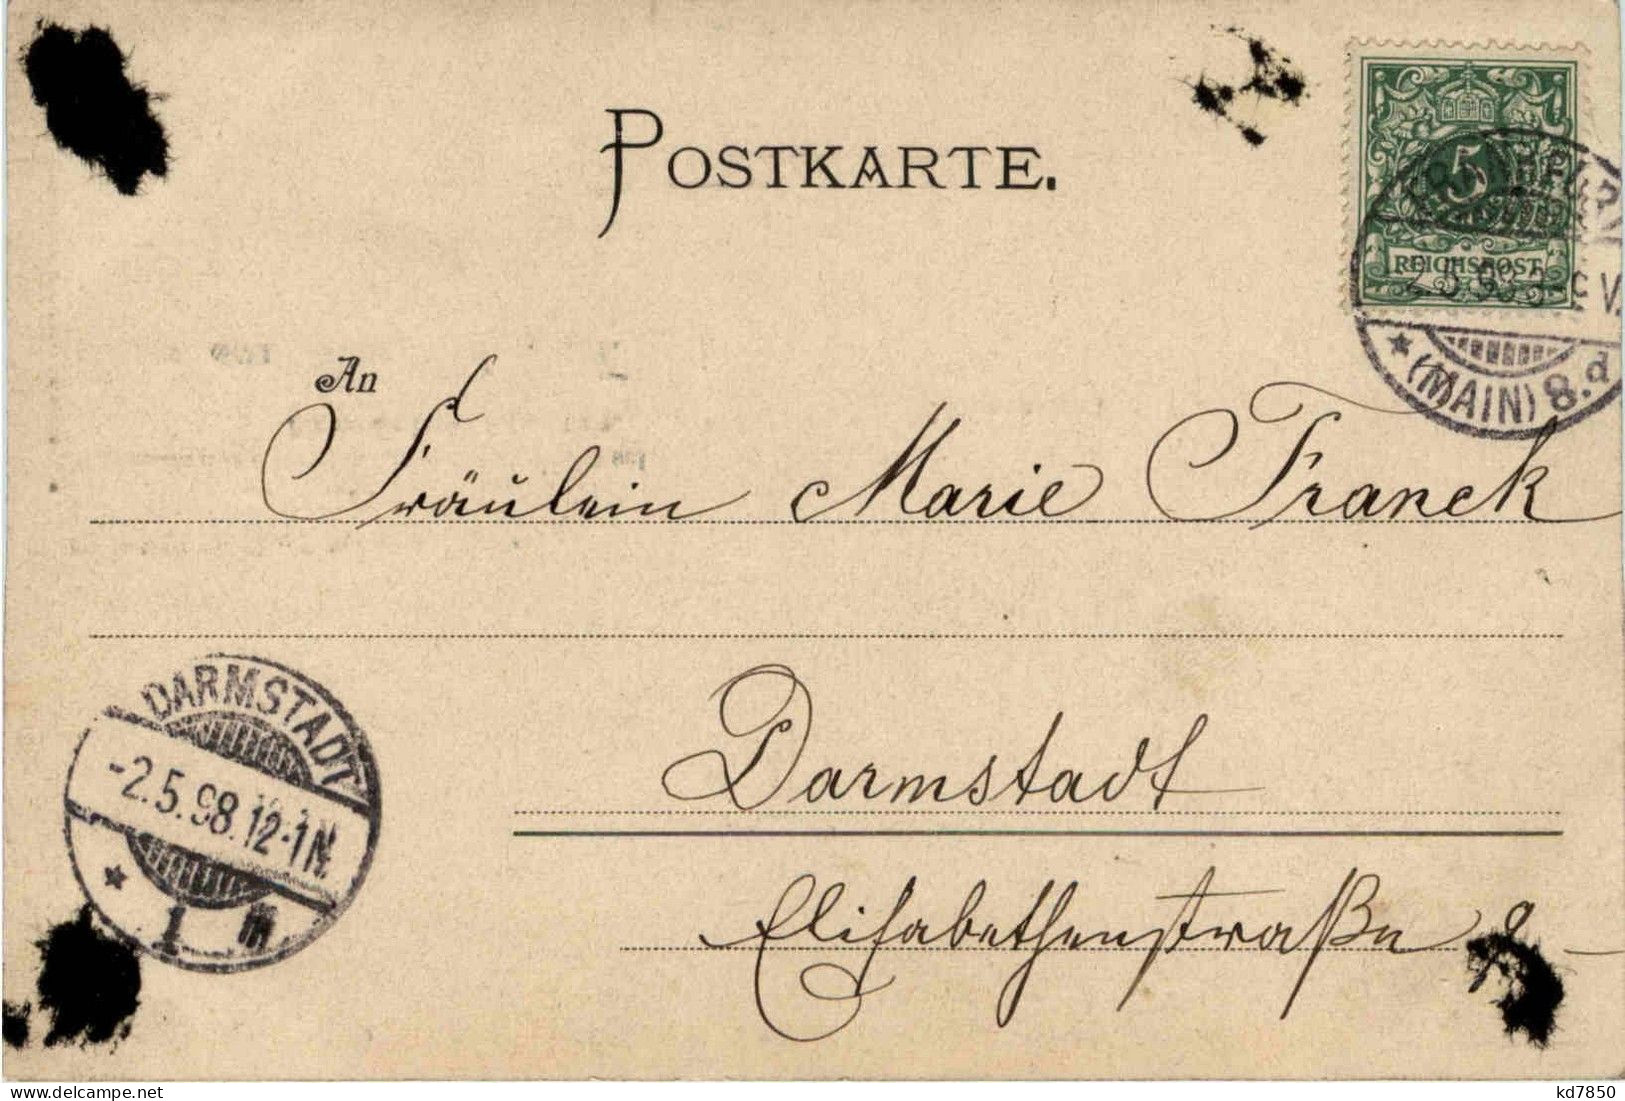 POSTKARTE.
5
REICHSPOST
2.5.98
V.
(MAIN) 8.d
An
Fräulein Marie Franck
DARMSTADT
-2.5.98.12-1N.
1
Darmstadt
Elisabethenstraße
delcampe.net
kd7850